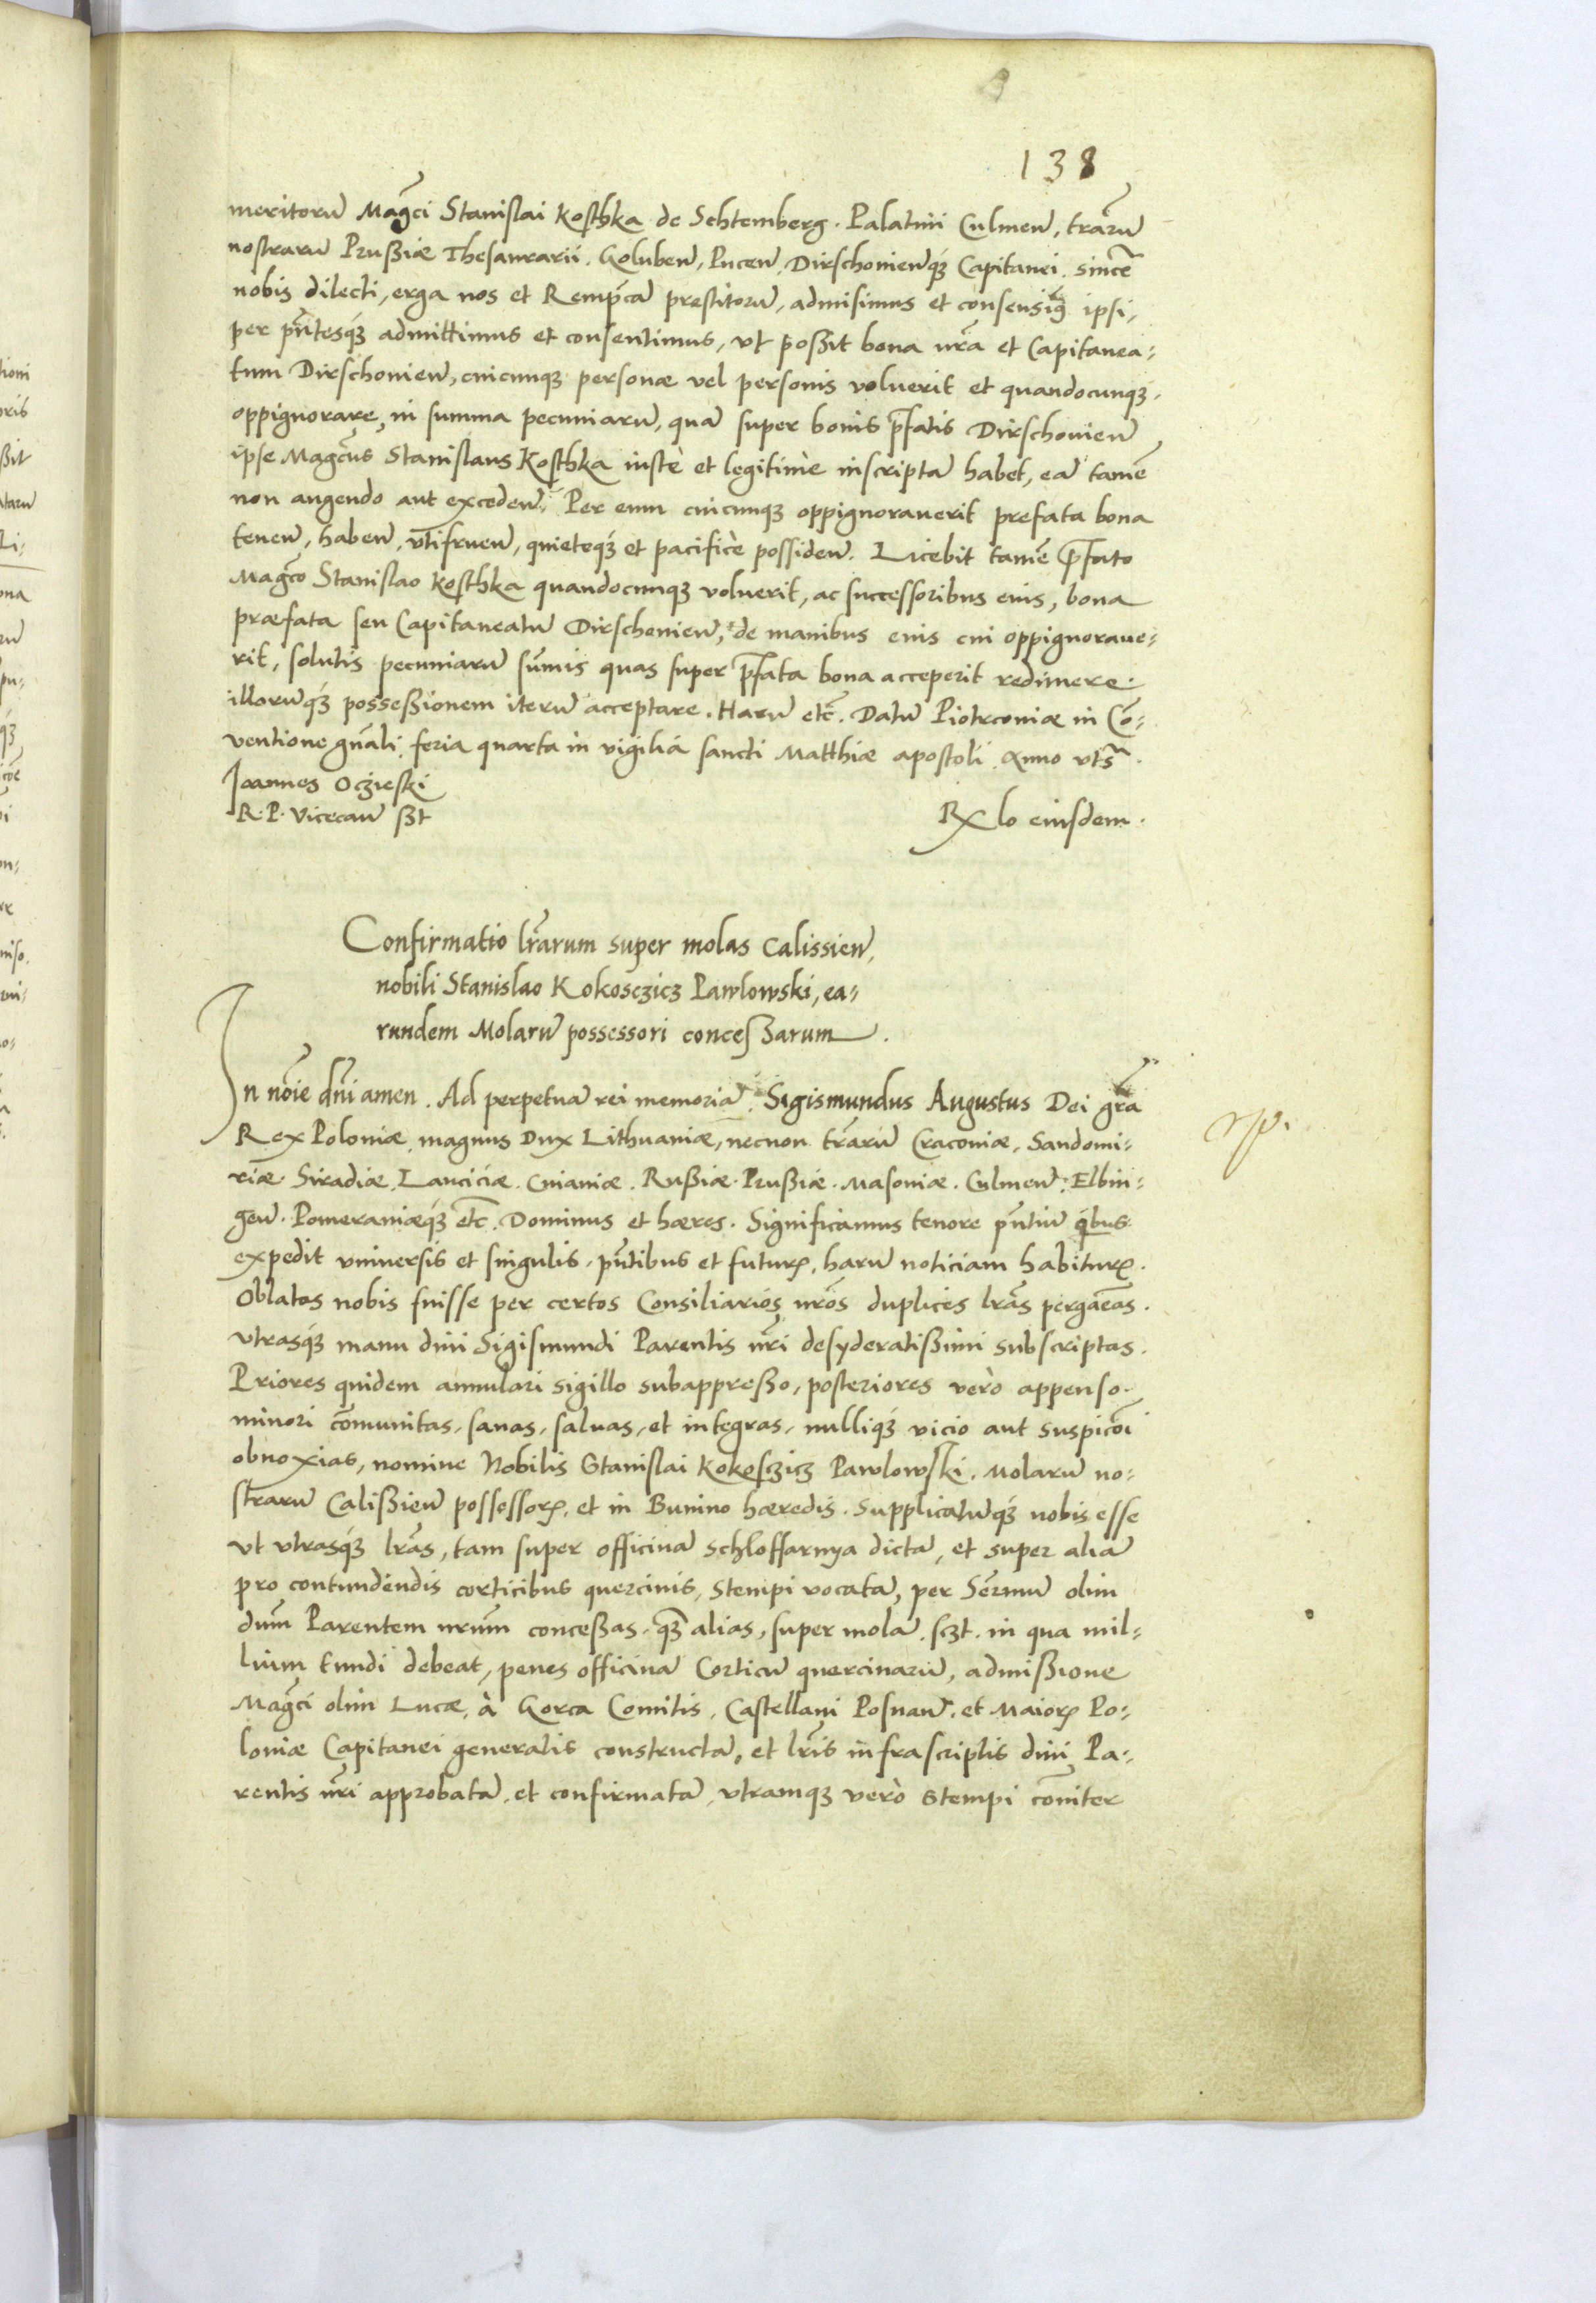 138
meritorũ Magci Stanislai Kosthka de Schtemberg. Palatini Culmen̄, trarũ
nostrarũ Prussiæ Thesaurarii. Goluben̄, Pucen̄, Dirschonien̄q3 Capitanei. sincē
nobis dilecti, erga nos et Rempcã prestitorũ, admisimus et consensimus ipsi,
per pñtesq3 admittimus et consentimus, vt possit bona nrã et Capitanea:
tum Dirschonien̄, cuicunq3 personæ vel personis voluerit et quandocunq3.
oppignorare, in summa pecuniarũ, quã super bonis p̃fatis Dirschonien̄
ipse Magcus Stanislaus Kosthka iustè et legitimè inscriptã habet, eã tamē
non augendo aut exceden̄. Per eum cuicunq3 oppignorauerit prefata bona
tenen̄, haben̄, vtifruen̄, quieteq3 et pacificè possiden̄. Licebit tamē p̃fato
Magco Stanislao Kosthka quandocunq3 voluerit, ac successoribus eius, bona
præfata seu Capitaneatũ Dirschonien̄, de manibus eius cui oppignoraue:
rit, solutis pecuniarũ sum̃is quas super p̃fata bona acceperit redimere.
illorũq3 possessionem iterũ acceptare. Harũ etc. Datũ Piotrconiæ in Cõ:
uentione gñali feria quarta in vigilia sancti Matthiæ apostoli. Anno vts̃.
Joannes Oczieski
R. P. Vicecan̄ sst
Rx̃lo eiusdem.
Confirmatio lrãrum super molas Calissien̄,
nobili Stanislao Kokosczicz Pawlowski, ea:
rundem Molarũ possessori concessarum.
In nõie dñi amen. Ad perpetuã rei memoriã. Sigismundus Augustus Dei grã
Rex Poloniæ magnus Dux Lithuaniæ, necnon trãrũ Craconiæ, Sandomi:
riæ. Siradiæ, Lanciciæ. Cuianiæ. Russiæ. Prussiæ. Masoniæ. Culmen̄. Elbin:
gen̄. Pomeraniæq3 etc. Dominus et hæres. Significamus tenore pñtiũ q̃bus
expedit vniuersis et singulis. pñtibus et futurꝝ, harũ noticiam habiturꝝ.
Oblatas nobis fuisse per certos Consiliarios nrõs duplices lrãs pergaẽas.
vtrasq3 manu diui Sigismundi Parentis nrĩ desyderatissimi subscriptas.
Priores quidem annulari sigillo subappresso, posteriores verò appenso
minori cõmunitas, sanas, saluas, et integras, nulliq3 vicio aut suspicõi
obnoxias, nomine Nobilis Stanislai Kokosczicz Pawlowski. Molarũ no:
strarũ Calissien̄ possessorꝝ. et in Bunino hæredis. Supplicatũq3 nobis esse
vt vtrasq3 lrãs, tam super officinã schloffarnya dictã, et super aliã
pro contundendis corticibus quercinis, Stempi vocatã, per Sermũ olim
dum Parentem nrum concessas. q3 alias, super molã. sczt. in qua mil:
lium tundi debeat, penes officinã Corticũ quercinarũ, admissione
Magci olim Lucæ à Gorca Comitis, Castellani Posnan̄. et Maiorꝝ Po:
loniæ Capitanei generalis constructã, et lrĩs infrascriptis diui Pa:
rentis nrĩ approbatã, et confirmatã, vtramq3 verò Stempi cõiter